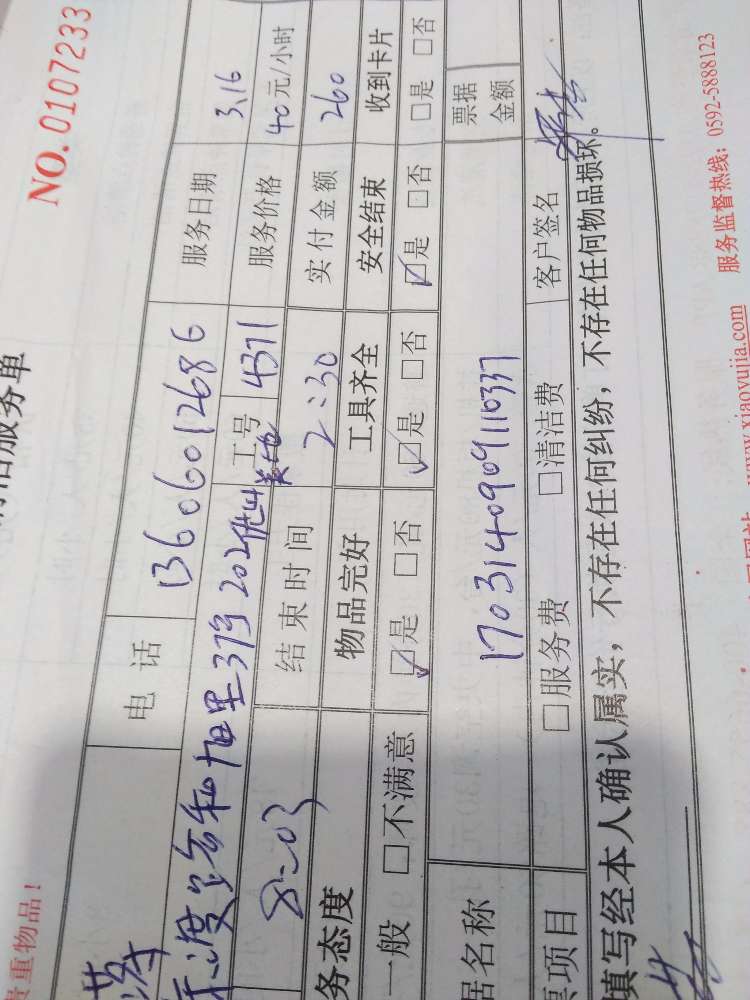 服务单
NO.0107233
贵重物品！
电话 13606012686 服务日期 3.16
37 202 工号 4371 服务价格 40元/小时
8:03 结束时间 2:30 实付金额 260
务态度 物品完好 工具齐全 安全结束 收到卡片
一般 □不满意 ☑是 □否 ☑是 □否 ☑是 □否 □是 □否
据名称 170314090911033 票据金额
票项目 □服务费 □清洁费 客户签名
填写经本人确认属实，不存在任何纠纷，不存在任何物品损坏。
www.xiaoyujia.com 服务监督热线：0592-5888123